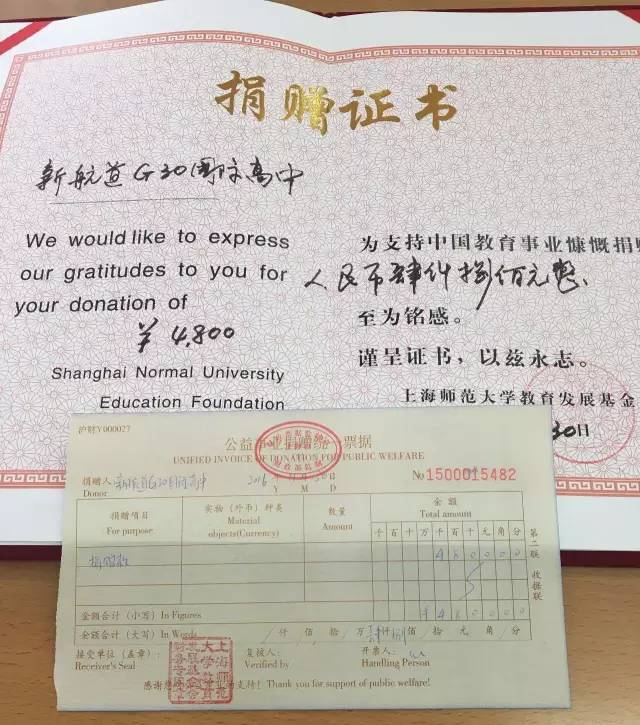 捐赠证书
新航道G20国际高中
We would like to express
our gratitudes to you for
your donation of
¥ 4,800
Shanghai Normal University
Education Foundation
为支持中国教育事业慷慨捐赠
人民币肆仟捌佰元整
至为铭感。
谨呈证书，以兹永志。
上海师范大学教育发展基金
30日
沪财Y000027
公益事业捐赠统一票据
UNIFIED INVOICE OF DONATION FOR PUBLIC WELFARE
捐赠人 新航道G20国际高中 2016 年 11 月 30 日 No 1500015482
Donor Y M D
捐赠项目 实物（外币）种类 数量 金额
For purpose Material objects(Currency) Amount Total amount
千 百 十 万 千 百 十 元 角 分
捐赠款 4 8 0 0 0 0
金额合计（小写）In Figures ¥ 4 8 0 0 0 0
金额合计（大写）In Words / 仟 佰 拾 / 万 肆 仟 捌 佰 拾 元 角 / 分
接受单位（盖章）： 复核人： 开票人：
Receiver's Seal Verified by Handling Person
感谢您 公益事业的支持！Thank you for support of public welfare!
第二联 收据联